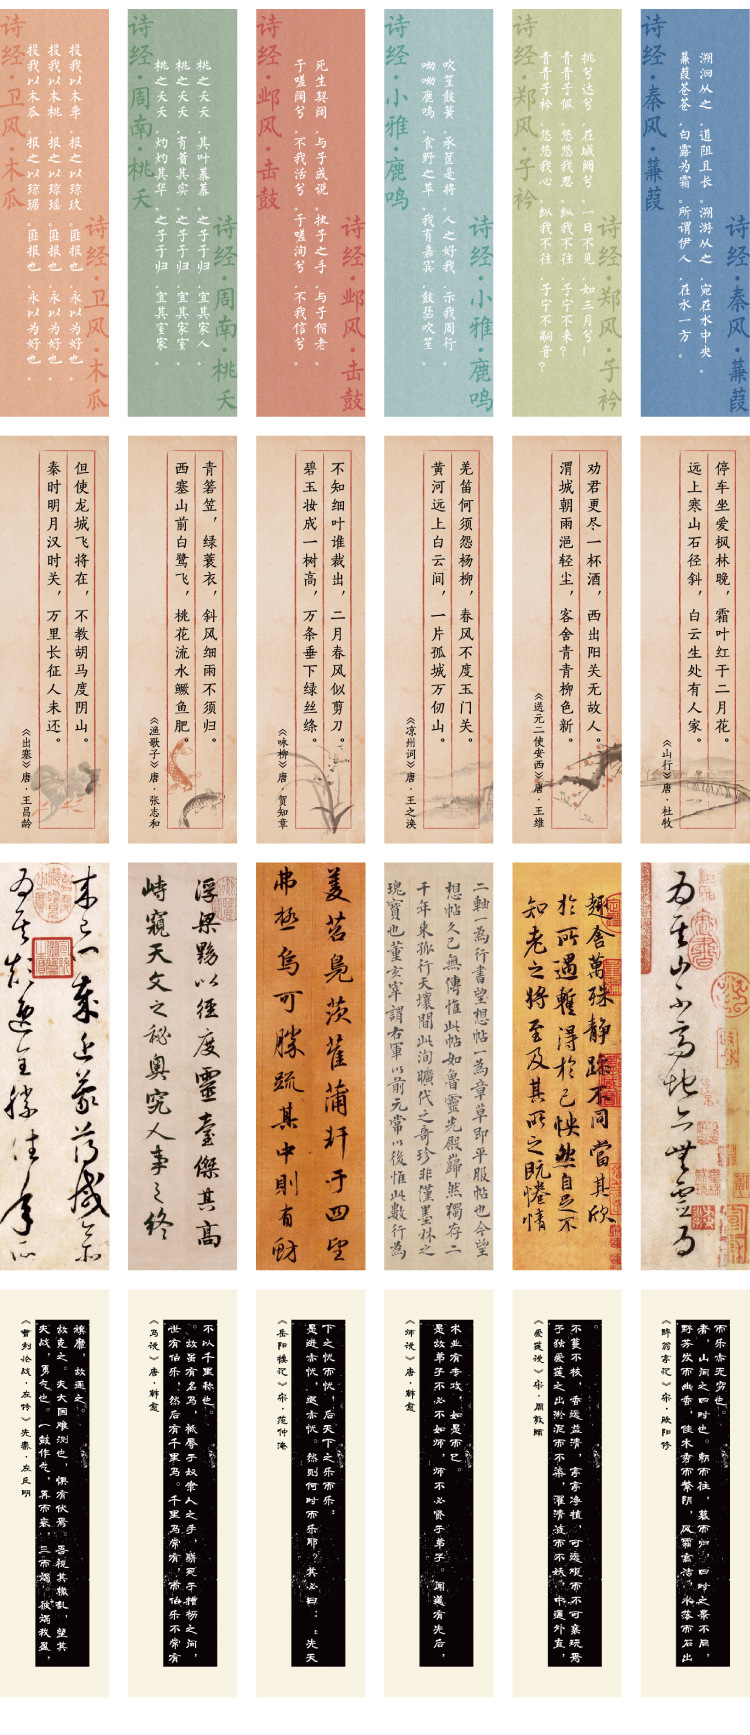 诗经·卫风·木瓜
投我以木瓜，报之以琼琚。匪报也，永以为好也。
投我以木桃，报之以琼瑶。匪报也，永以为好也。
投我以木李，报之以琼玖。匪报也，永以为好也。
诗经·卫风·木瓜
诗经·周南·桃夭
桃之夭夭，灼灼其华。之子于归，宜其室家。
桃之夭夭，有蕡其实。之子于归，宜其家室。
桃之夭夭，其叶蓁蓁。之子于归，宜其家人。
诗经·周南·桃夭
诗经·邶风·击鼓
死生契阔，与子成说。执子之手，与子偕老。
于嗟阔兮，不我活兮。于嗟洵兮，不我信兮。
诗经·邶风·击鼓
诗经·小雅·鹿鸣
呦呦鹿鸣，食野之苹。我有嘉宾，鼓瑟吹笙。
吹笙鼓簧，承筐是将。人之好我，示我周行。
诗经·小雅·鹿鸣
诗经·郑风·子衿
青青子衿，悠悠我心。纵我不往，子宁不嗣音？
青青子佩，悠悠我思。纵我不往，子宁不来？
挑兮达兮，在城阙兮。一日不见，如三月兮！
诗经·郑风·子衿
诗经·秦风·蒹葭
蒹葭苍苍，白露为霜。所谓伊人，在水一方。
溯洄从之，道阻且长。溯游从之，宛在水中央。
诗经·秦风·蒹葭
秦时明月汉时关，万里长征人未还。
但使龙城飞将在，不教胡马度阴山。
《出塞》唐·王昌龄
西塞山前白鹭飞，桃花流水鳜鱼肥。
青箬笠，绿蓑衣，斜风细雨不须归。
《渔歌子》唐·张志和
碧玉妆成一树高，万条垂下绿丝绦。
不知细叶谁裁出，二月春风似剪刀。
《咏柳》唐·贺知章
黄河远上白云间，一片孤城万仞山。
羌笛何须怨杨柳，春风不度玉门关。
《凉州词》唐·王之涣
渭城朝雨浥轻尘，客舍青青柳色新。
劝君更尽一杯酒，西出阳关无故人。
《送元二使安西》唐·王维
远上寒山石径斜，白云生处有人家。
停车坐爱枫林晚，霜叶红于二月花。
《山行》唐·杜牧
浮梁黟以徑度靈臺傑其高
峙窺天文之秘奥究人事之終
四望
弗極烏可勝疏其中則有
二軸一為行書望想帖一為章草即平服帖也今望
想帖久已無傳惟此帖如魯靈光殿巋然獨存二
千年來孤行天壤間此洵曠代之奇珍非僅墨林之
瑰寶也董玄宰謂右軍以前元常以後惟此數行為
趣舍萬殊静躁不同當其欣
於所遇暫得於己怏然自足不
知老之將至及其所之既惓情
夫战，勇气也。一鼓作气，再而衰，三而竭。彼竭我盈，
故克之。夫大国难测也，惧有伏焉。吾视其辙乱，望其
旗靡，故逐之。
《曹刿论战·左传》先秦·左丘明
世有伯乐，然后有千里马。千里马常有，而伯乐不常有
。故虽有名马，祗辱于奴隶人之手，骈死于槽枥之间，
不以千里称也。
《马说》唐·韩愈
是进亦忧，退亦忧。然则何时而乐耶？其必曰：：先天
下之忧而忧，后天下之乐而乐；
《岳阳楼记》宋·范仲淹
是故弟子不必不如师，师不必贤于弟子。闻道有先后，
术业有专攻，如是而已。
《师说》唐·韩愈
予独爱莲之出淤泥而不染，濯清涟而不妖，中通外直，
不蔓不枝，香远益清，亭亭净植，可远观而不可亵玩焉
。
《爱莲说》宋·周敦颐
野芳发而幽香，佳木秀而繁阴，风霜高洁，水落而石出
者，山间之四时也。朝而往，暮而归，四时之景不同，
而乐亦无穷也。
《醉翁亭记》宋·欧阳修